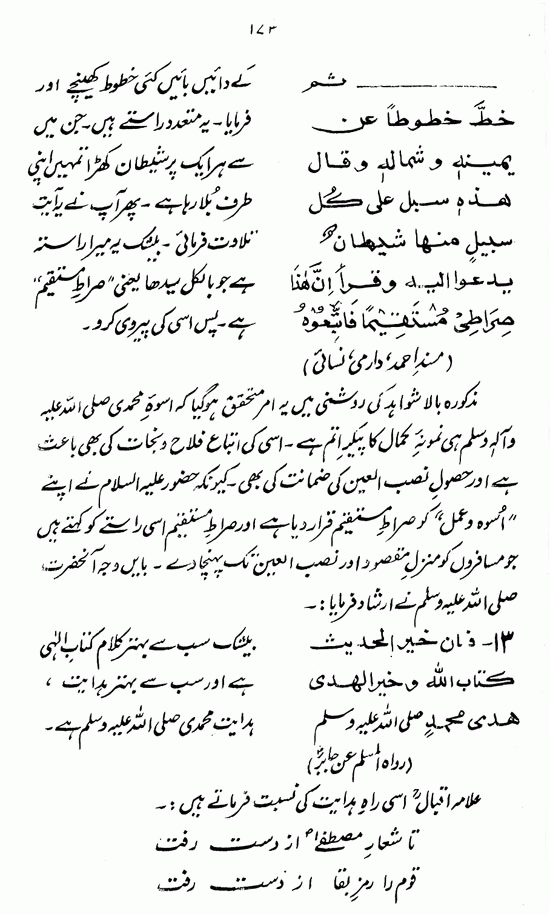 ۱۷۳
ـــــــــــــ ثم
خطَّ خطوطاً عن
یمینہٖ وشمالہٖ وقال
ھذہٖ سبل علی کُل
سبیلٍ منھا شیطانٌ
یدعوا الیہ وقرأ اِنَّ ھٰذَا
صِرَاطِیْ مُسْتَقِیْمًا فَاتَّبِعُوْہُ
کے دائیں بائیں کئی خطوط کھینچے اور
فرمایا۔ یہ متعدد راستے ہیں۔ جن میں
سے ہر ایک پر شیطان کھڑا تمہیں اپنی
طرف بُلا رہا ہے۔ پھر آپ نے یہ آیت
تلاوت فرمائی۔ بیشک یہ میرا راستہ
ہے جو بالکل سیدھا یعنی "صراطِ مستقیم"
ہے۔ پس اسی کی پیروی کرو۔
(مسند احمد، دارمی، نسائی)
مذکورہ بالا شواہد کی روشنی میں یہ امر متحقق ہوگیا کہ اسوۂ محمدی صلی اللہ علیہ
وآلہٖ وسلم ہی نمونۂ کمال کا پیکرِ اتم ہے۔ اسی کی اتباع فلاح و نجات کی بھی باعث
ہے اور حصولِ نصب العین کی ضمانت کی بھی۔ کیونکہ حضور علیہ السلام نے اپنے
"اُسوہ و عمل" کو صراطِ مستقیم قرار دیا ہے اور صراطِ مستقیم اسی راستے کو کہتے ہیں
جو مسافروں کو منزلِ مقصود اور نصب العین تک پہنچا دے۔ بایں وجہ آنحضرت
صلی اللہ علیہ وسلم نے ارشاد فرمایا:۔
۱۳- فان خیر الحدیث
کتاب اللہ وخیر الھدی
ھدی محمدٍ صلی اللہ علیہ وسلم
بیشک سب سے بہتر کلام کتابِ الٰہی
ہے اور سب سے بہتر ہدایت،
ہدایت محمدی صلی اللہ علیہ وسلم ہے۔
(رواہ المسلم عن جابرؓ)
علامہ اقبالؒ اسی راہِ ہدایت کی نسبت فرماتے ہیں:۔
تا شعارِ مصطفےٰؐ از دست رفت
قوم را رمزِ بقا از دست رفت